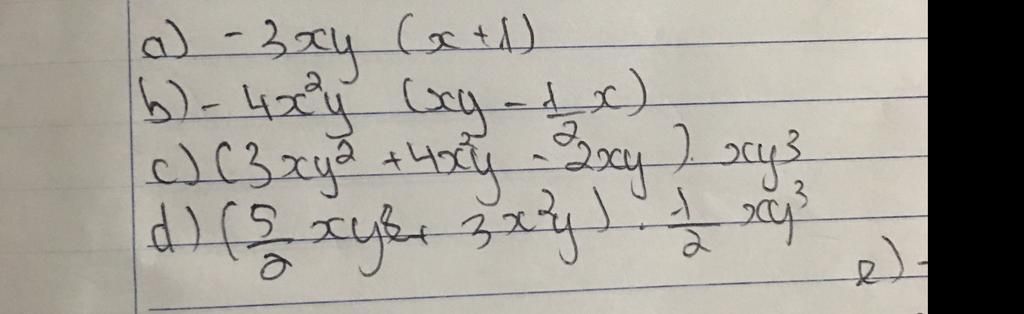 a) - 3xy (x+1)
b) - 4x²y (xy - 1/2 x)
c) (3xy² + 4x²y - 2xy) . xy³
d) (5/2 xy² + 3x²y) . 1/2 xy³
e) -